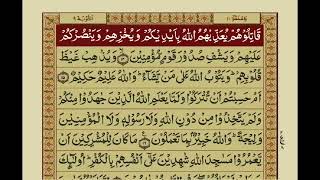 التوبة ٩ واعلموا ١٠
قَاتِلُوْهُمْ يُعَذِّبْهُمُ اللّٰهُ بِاَيْدِيْكُمْ وَيُخْزِهِمْ وَيَنْصُرْكُمْ
عَلَيْهِمْ وَيَشْفِ صُدُوْرَ قَوْمٍ مُّؤْمِنِيْنَ ۙ﴿١٤﴾ وَيُذْهِبْ غَيْظَ
قُلُوْبِهِمْ ؕ وَيَتُوْبُ اللّٰهُ عَلٰى مَنْ يَّشَآءُ ؕ وَاللّٰهُ عَلِيْمٌ حَكِيْمٌ ﴿١٥﴾
اَمْ حَسِبْتُمْ اَنْ تُتْرَكُوْا وَلَمَّا يَعْلَمِ اللّٰهُ الَّذِيْنَ جٰهَدُوْا مِنْكُمْ
وَلَمْ يَتَّخِذُوْا مِنْ دُوْنِ اللّٰهِ وَلَا رَسُوْلِهٖ وَلَا الْمُؤْمِنِيْنَ
وَلِيْجَةً ؕ وَاللّٰهُ خَبِيْرٌۢ بِمَا تَعْمَلُوْنَ ﴿١٦﴾ مَا كَانَ لِلْمُشْرِكِيْنَ اَنْ
يَّعْمُرُوْا مَسٰجِدَ اللّٰهِ شٰهِدِيْنَ عَلٰٓى اَنْفُسِهِمْ بِالْكُفْرِ ؕ اُولٰٓئِكَ